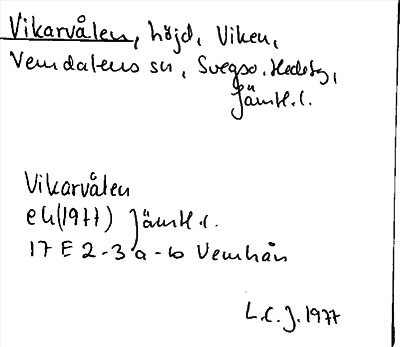 Vikarvålen, höjd, Viken,
Vemdalens sn, Svegso. Hedetg,
Jämtl. l.
Vikarvålen
ek(1977) Jämtl. l.
17 E 2-3 a-b Vemhån
L.C.J. 1977